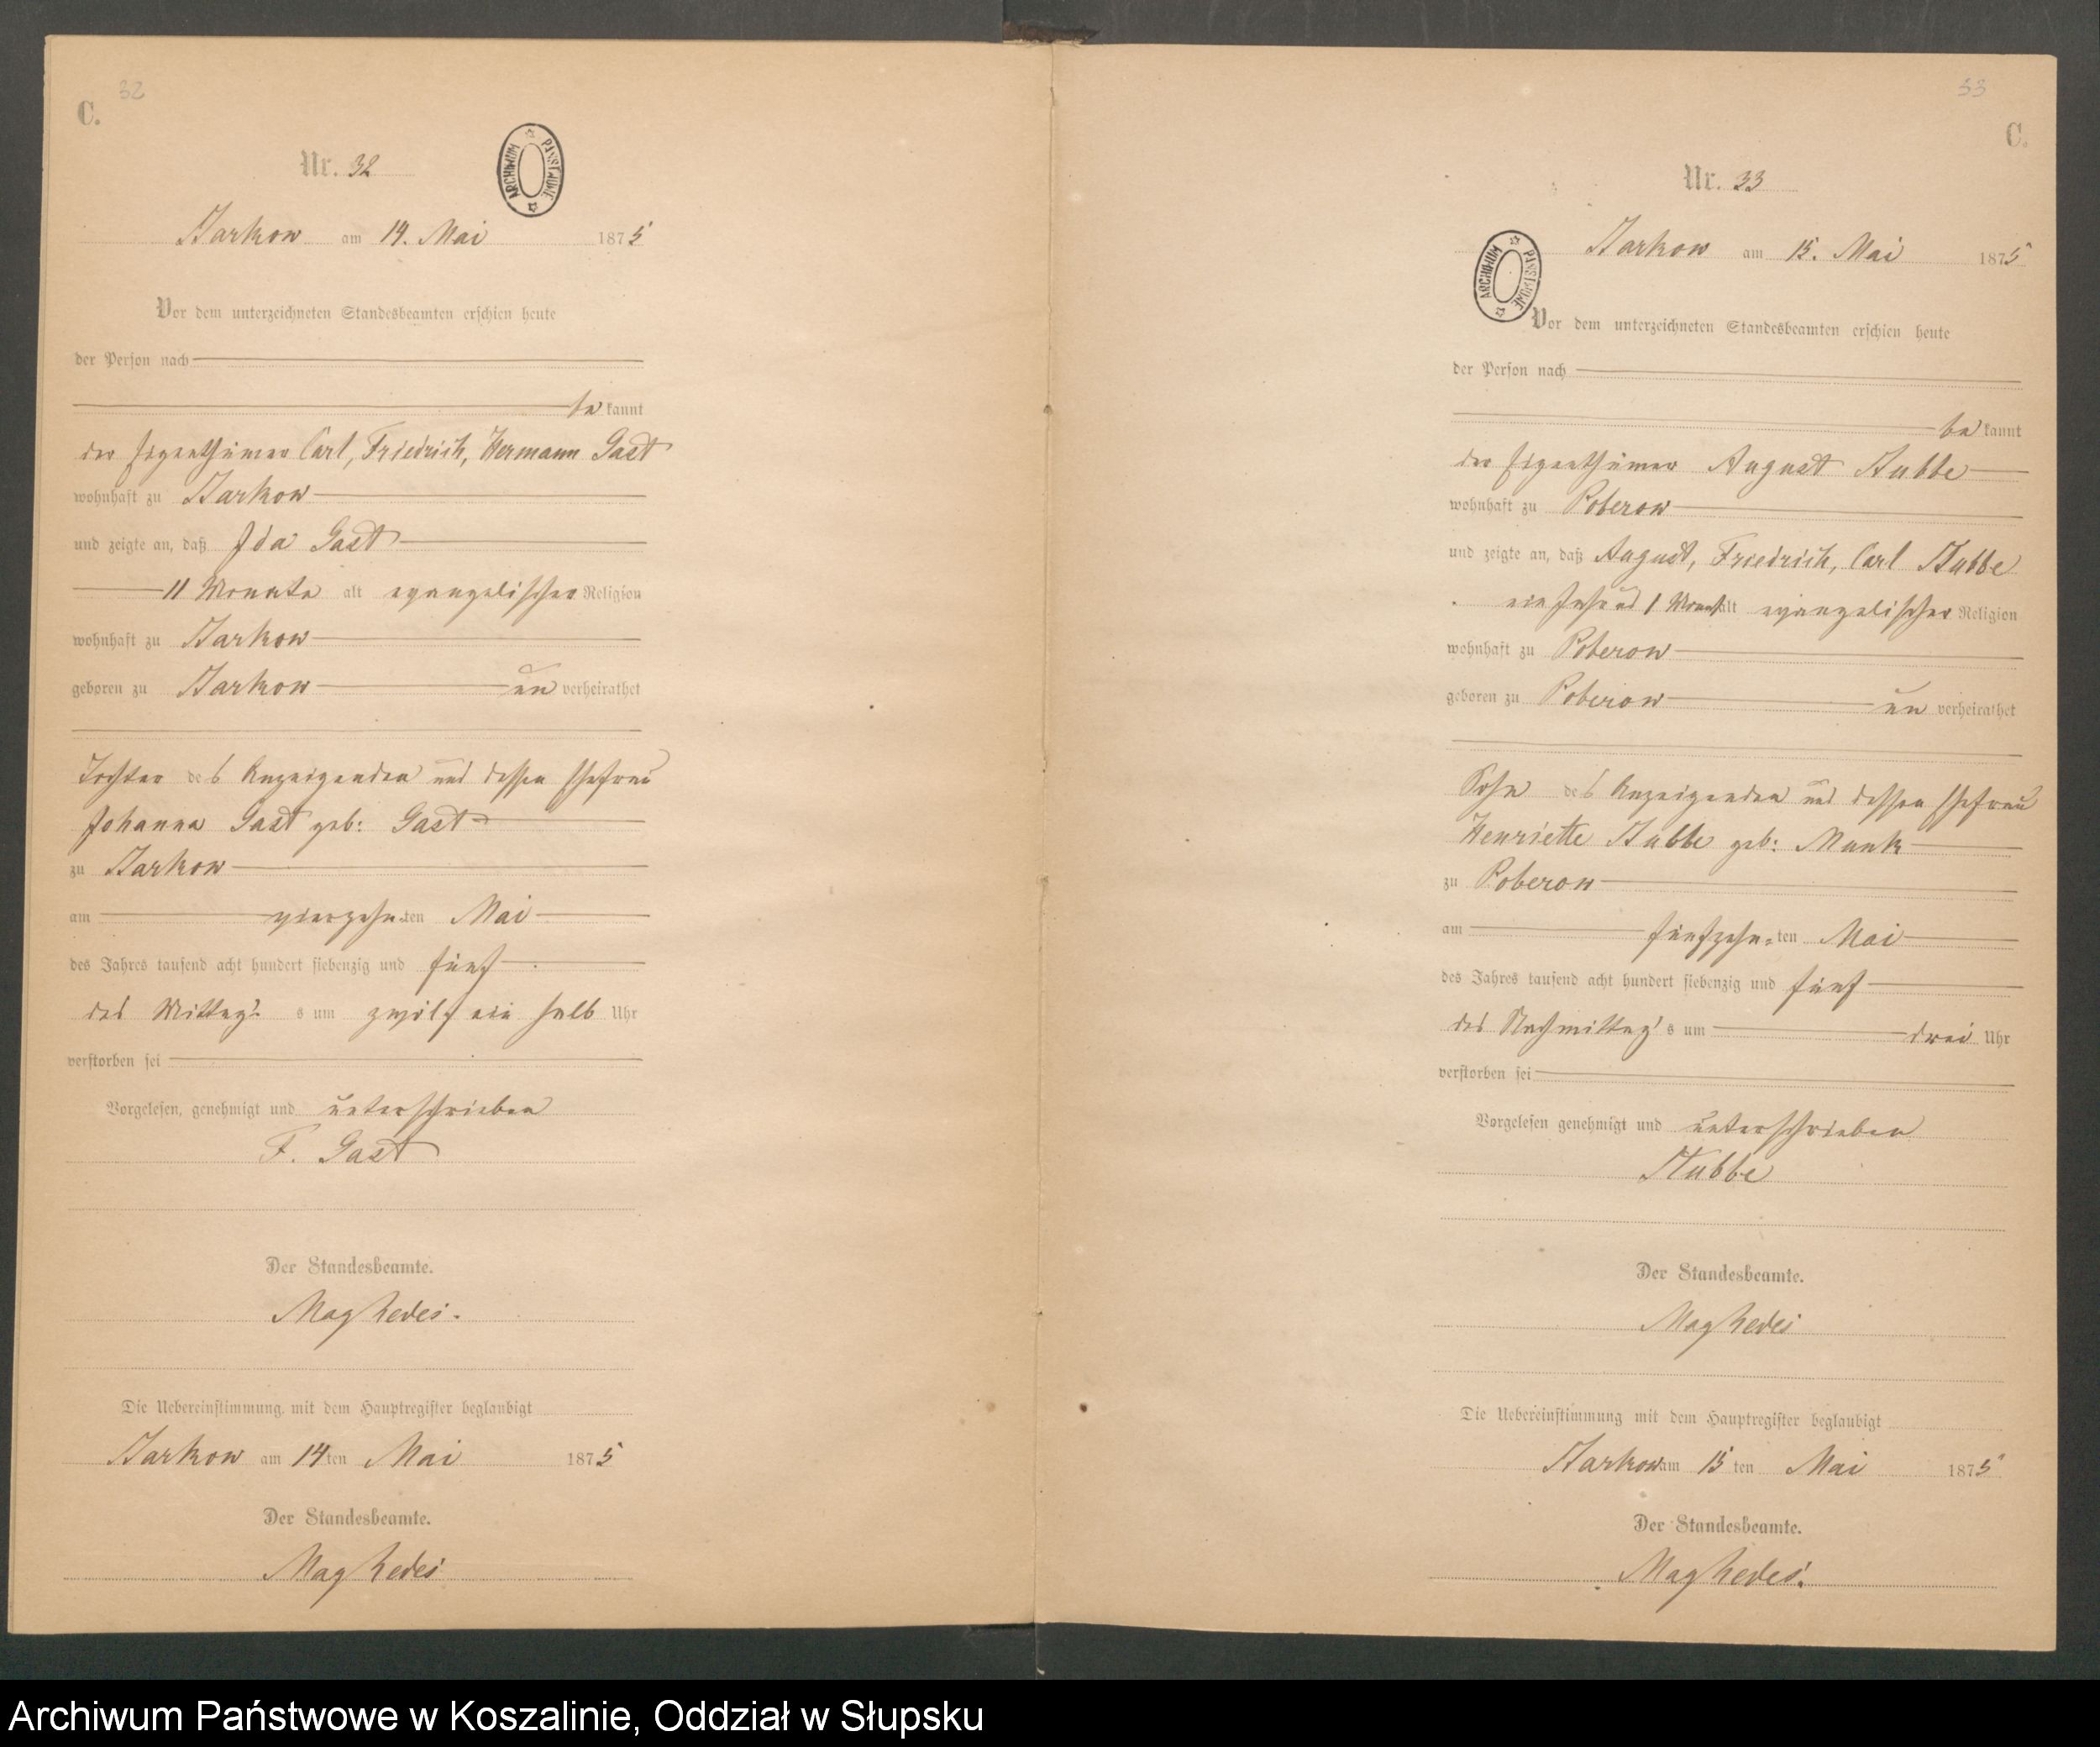 32
C.
Nr. 32
ARCHIWUM PAŃSTWOWE
Starkow am 14. Mai 1875
Vor dem unterzeichneten Standesbeamten erschien heute
der Person nach
bekannt
der Eigenthümer Carl, Friedrich, Hermann Gast
wohnhaft zu Starkow
und zeigte an, daß Ida Gast
11 Monate alt evangelischer Religion
wohnhaft zu Starkow
geboren zu Starkow unverheirathet
Tochter des Anzeigenden und dessen Ehefrau
Johanna Gast geb: Gast
zu Starkow
am vierzehnten Mai
des Jahres tausend acht hundert siebenzig und fünf
des Mittags um zwölf ein halb Uhr
verstorben sei
Vorgelesen, genehmigt und unterschrieben
F. Gast
Der Standesbeamte.
Die Uebereinstimmung mit dem Hauptregister beglaubigt
Starkow am 14ten Mai 1875
Der Standesbeamte.
33
C.
Nr. 33
ARCHIWUM PAŃSTWOWE
Starkow am 15. Mai 1875
Vor dem unterzeichneten Standesbeamten erschien heute
der Person nach
bekannt
der Eigenthümer August Stubbe
wohnhaft zu Poberow
und zeigte an, daß August, Friedrich, Carl Stubbe
ein Jahr und 1 Monat alt evangelischer Religion
wohnhaft zu Poberow
geboren zu Poberow unverheirathet
Sohn des Anzeigenden und dessen Ehefrau
Henriette Stubbe geb: Munk
zu Poberow
am fünfzehnten Mai
des Jahres tausend acht hundert siebenzig und fünf
des Nachmittags um drei Uhr
verstorben sei
Vorgelesen genehmigt und unterschrieben
Stubbe
Der Standesbeamte.
Die Uebereinstimmung mit dem Hauptregister beglaubigt
Starkow am 15ten Mai 1875
Der Standesbeamte.
Archiwum Państwowe w Koszalinie, Oddział w Słupsku